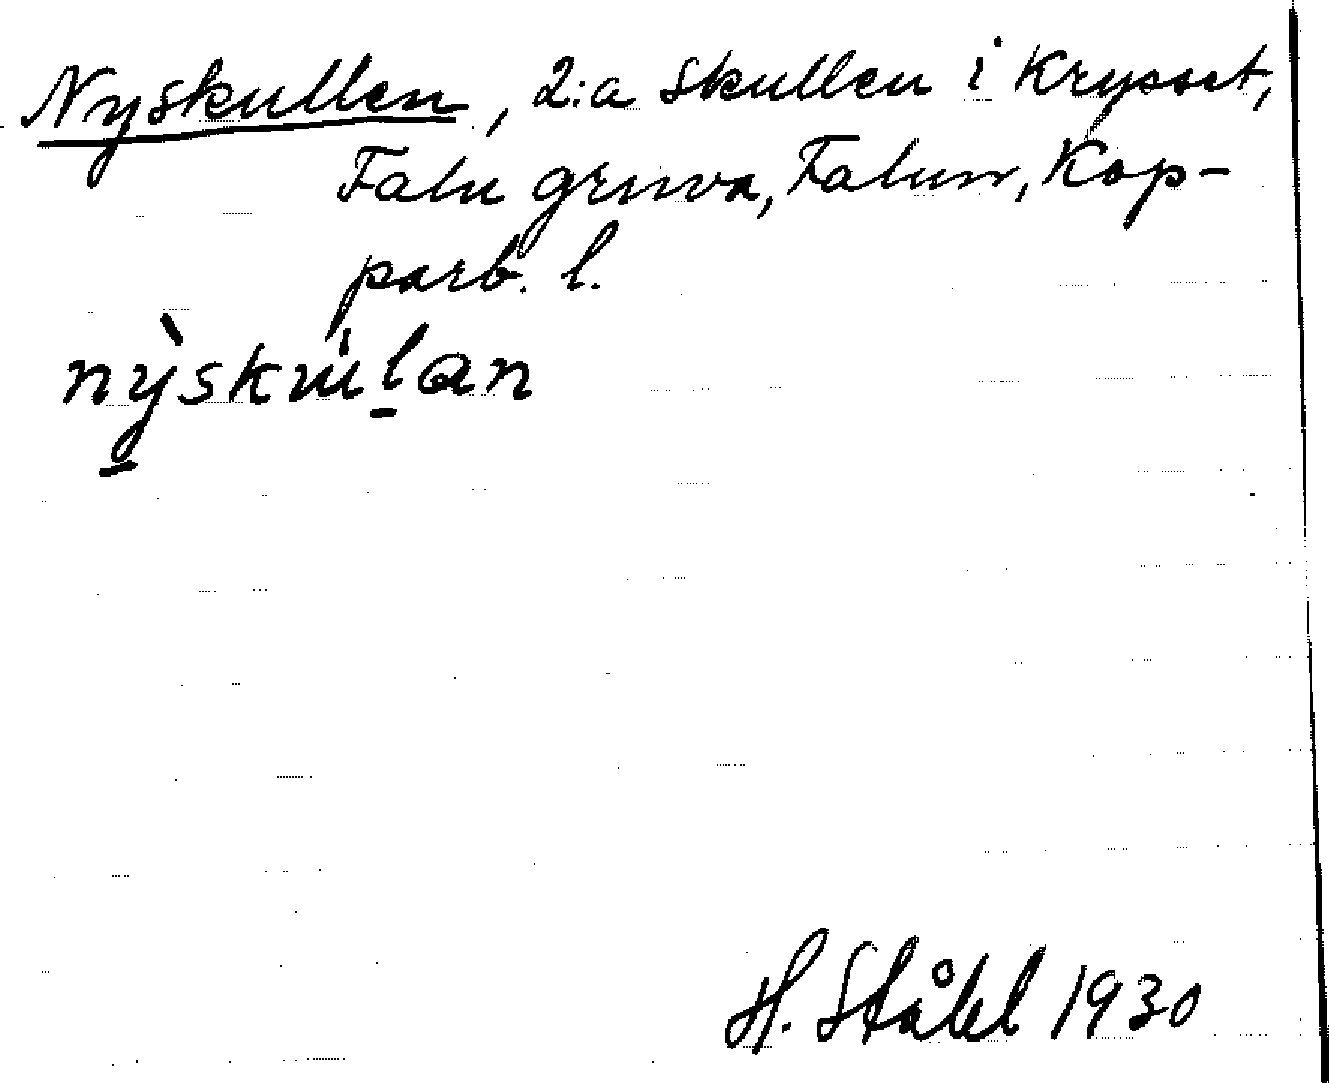 Nyskullen, 2:a Skullen i Krysset,
Falu gruva, Falun, Kop-
parb. l.
nỳskúlan
H. Ståhl 1930